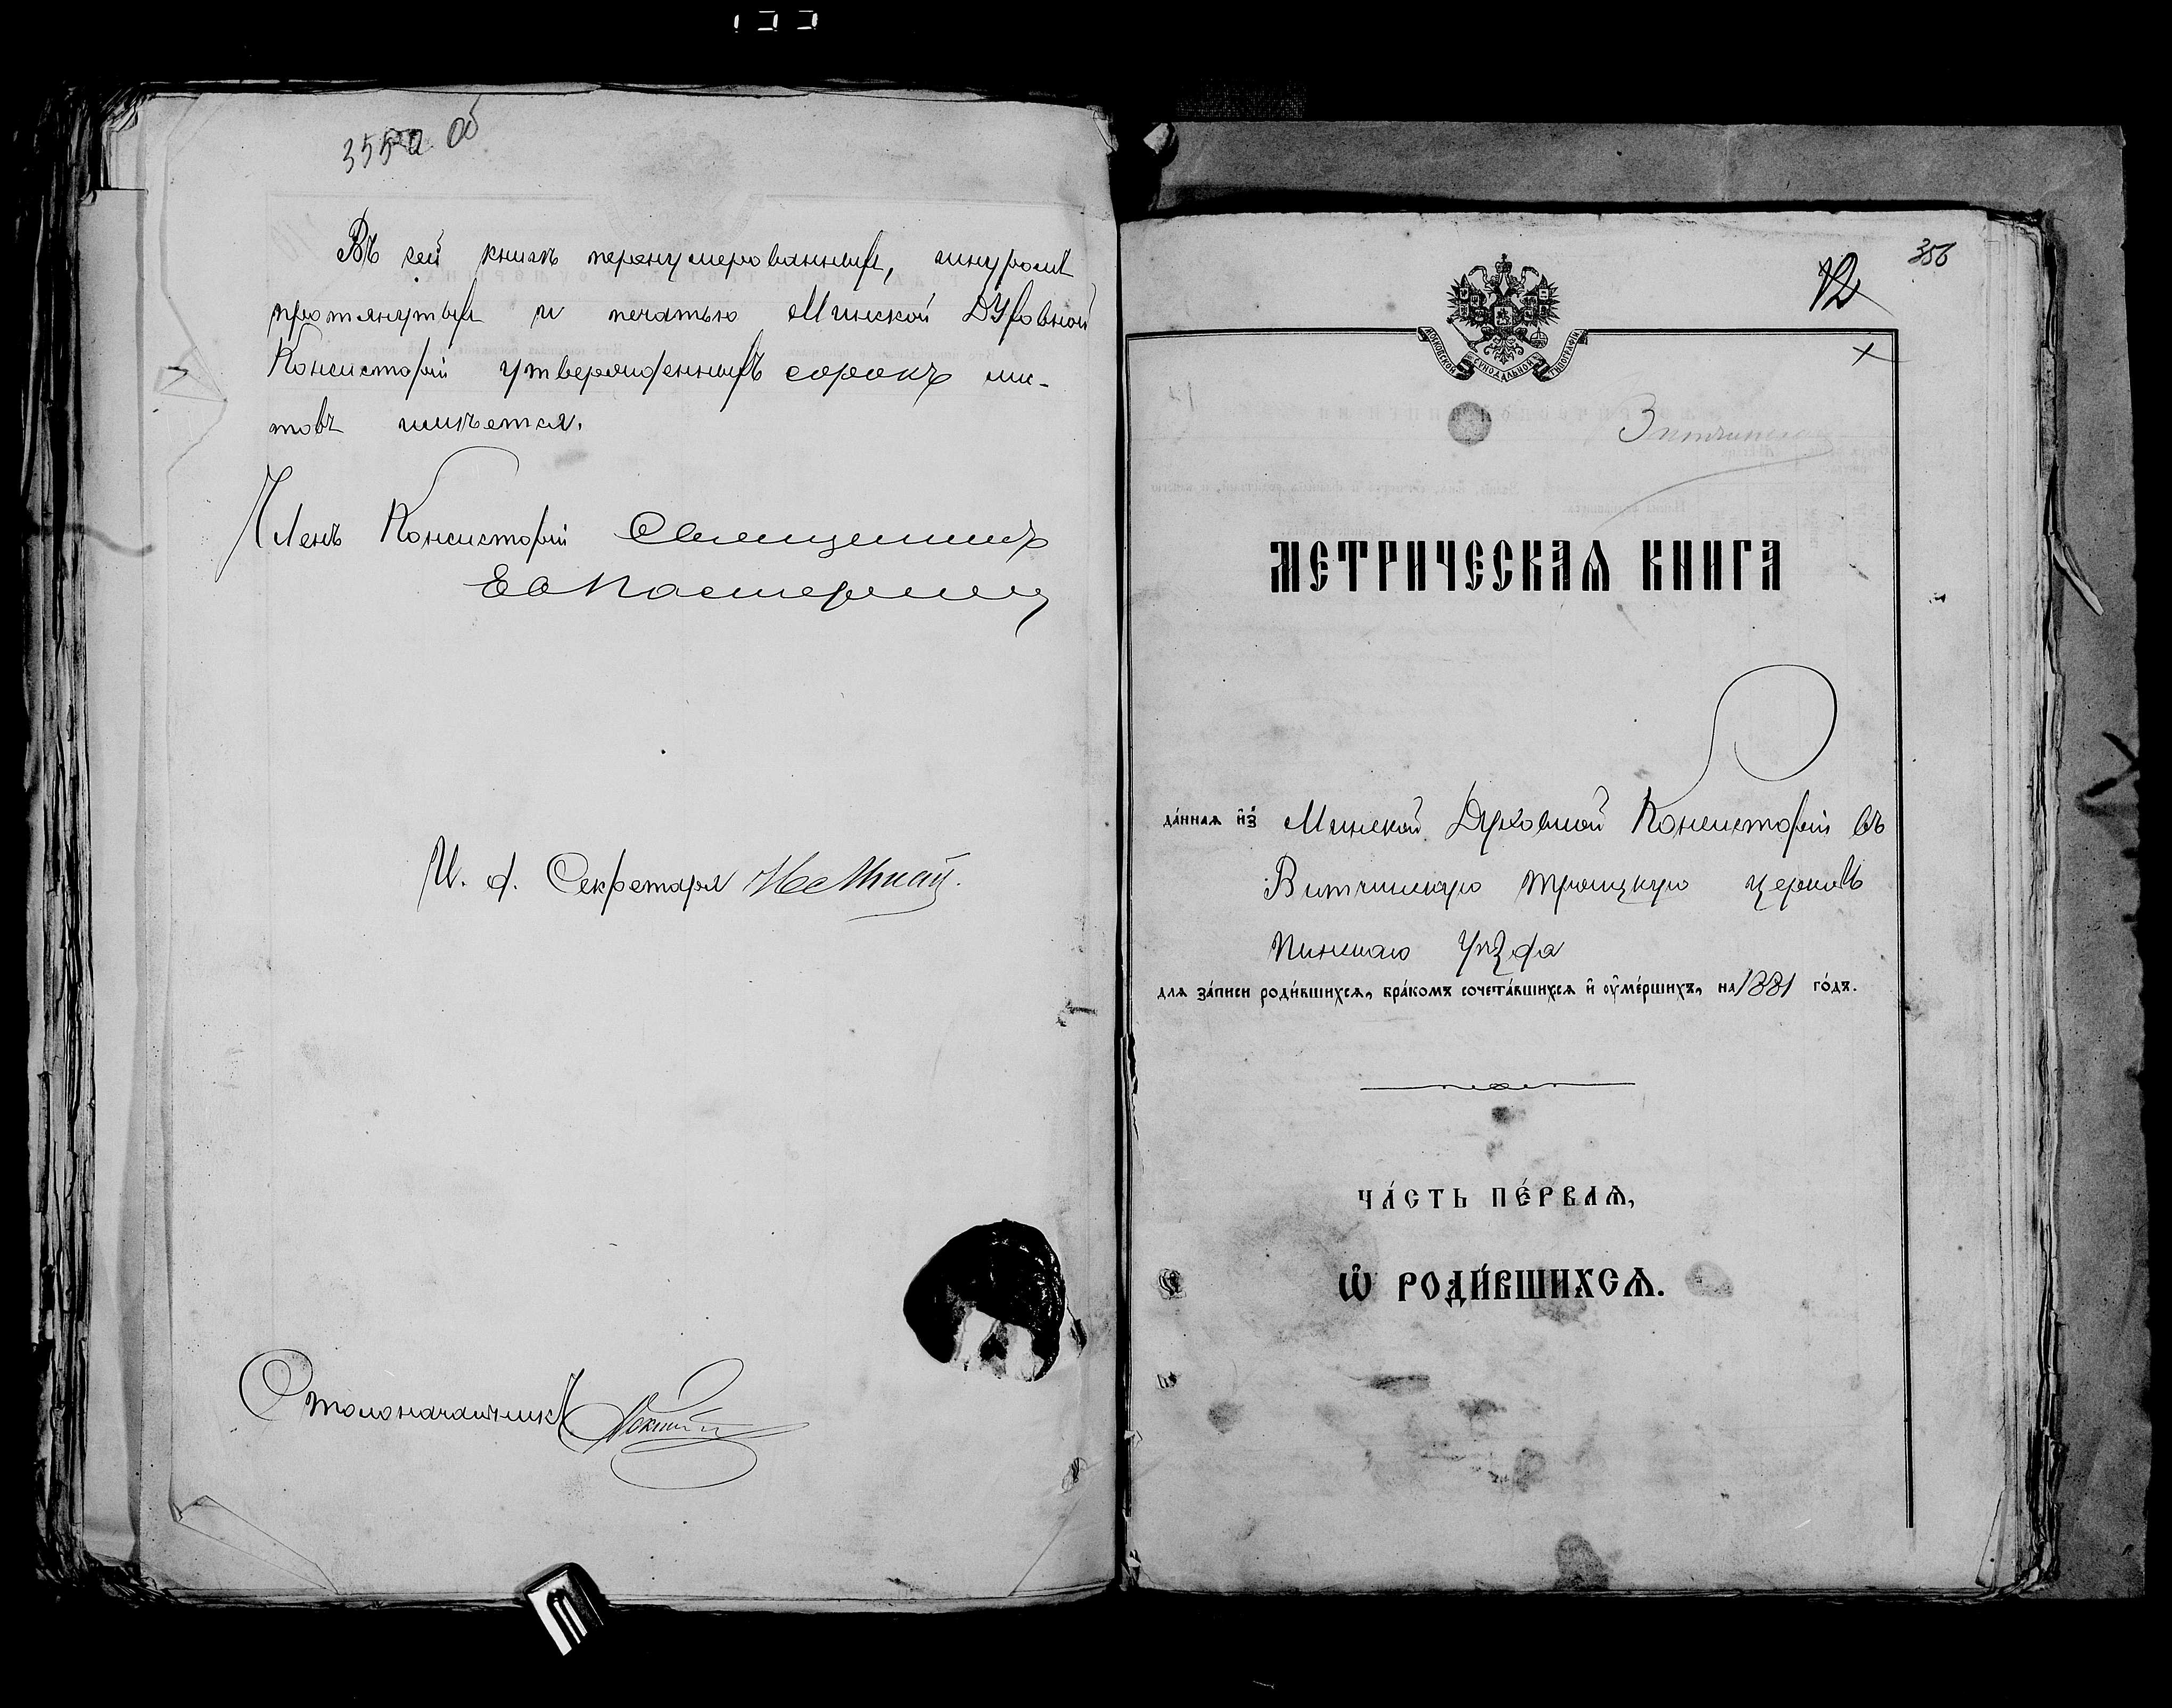 355а об
Въ сей книгѣ перенумерованныхъ, шнуромъ
протянутыхъ и печатью Минской Духовной
Консисторіи утвержденныхъ сорокъ лис-
товъ имѣется.
Членъ Консисторіи Священникъ
И. д. Секретаря
Столоначальникъ
356
12
МОСКОВСКОЙ СѴНОДАЛЬНОЙ ТИПОГРАФІИ
МЕТРИЧЕСКАѦ КНИГА
да́ннаѧ и҆з̾ Минской Духовной Консисторіи въ
Витчинскую Троицкую церковь
Пинскаго уѣзда
для за́писи роди́вшихсѧ, бра́комъ сочета́вшихсѧ и҆ ᲂу҆ме́ршихъ, на 1881 го́дъ.
ЧА́СТЬ ПЕ́РВАѦ,
Ѽ РОДИ́ВШИХСѦ.